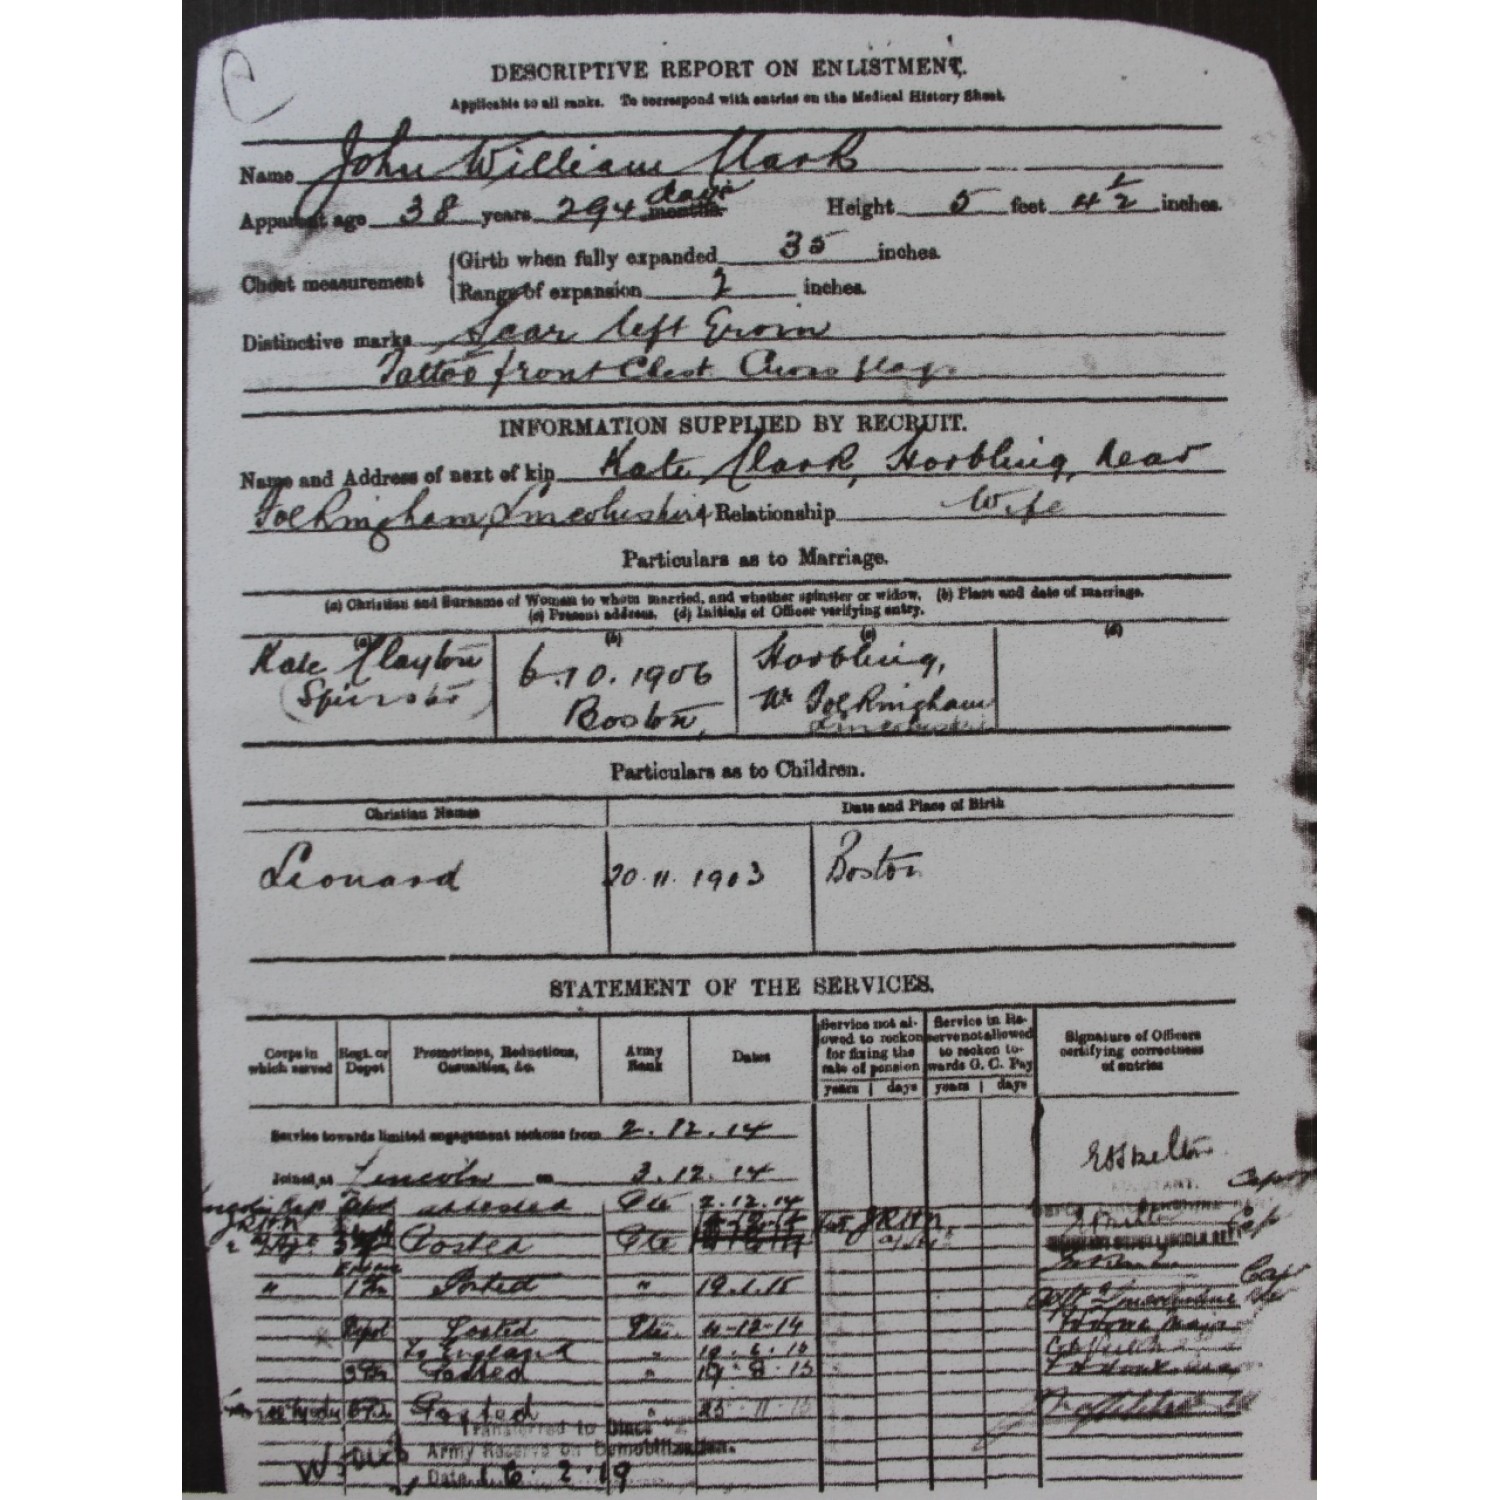 DESCRIPTIVE REPORT ON ENLISTMENT.
Applicable to all ranks. To correspond with entries on the Medical History Sheet.
Name John William Clark
Apparent age 38 years 294 months days Height 5 feet 4 1/2 inches.
Chest measurement
Girth when fully expanded 35 inches.
Range of expansion 2 inches.
Distinctive marks Scar left Groin
Tattoo front Chest Cross flags
INFORMATION SUPPLIED BY RECRUIT.
Name and Address of next of kin Kate Clark, Horbling, near
Folkingham, Lincolnshire Relationship Wife
Particulars as to Marriage.
(a) Christian and Surname of Woman to whom married, and whether spinster or widow. (b) Place and date of marriage.
(c) Present address. (d) Initials of Officer verifying entry.
(a) (b) (c) (d)
Kate Clayton 6.10.1906 Horbling,
(Spinster) Boston, Nr Folkingham
Lincolnshire
Particulars as to Children.
Christian Names Date and Place of Birth
Leonard 20.11.1903 Boston
STATEMENT OF THE SERVICES.
Corps in which served Regt. or Depot Promotions, Reductions, Casualties, &c. Army Rank Dates Service not allowed to reckon for fixing the rate of pension Service in Reserve not allowed to reckon towards G. C. Pay Signature of Officers certifying correctness of entries
years days years days
Service towards limited engagement reckons from 2.12.14
Joined at Lincoln on 3.12.14
Depot attested Pte 2.12.14
Posted Pte
" Posted " 19.1.15
Depot Posted Pte 4-12-14
To England "
3rd Posted " 19.8.15
Posted "
Transferred to Class Z
Army Reserve on Demobilization.
Date 16.2.19